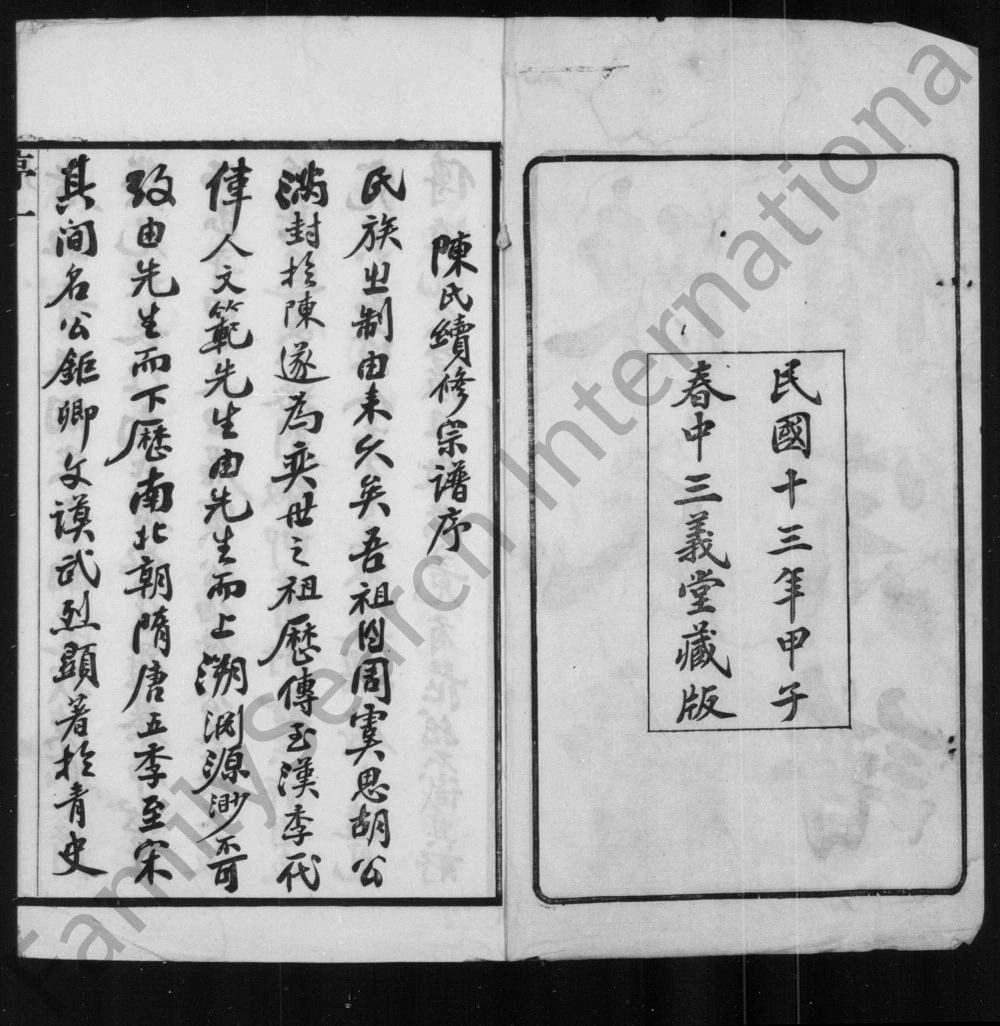 民國十三年甲子
春中三義堂藏版
陳氏續修宗譜序
氏族之制由来久矣吾祖自周虞思胡公
满封於陳遂為奕世之祖歷傳至漢季代
偉人文範先生由先生而上溯渊源渺不可
攷由先生而下歷南北朝隋唐五季至宋
其间名公鉅卿文謨武烈顯著於青史
序一
FamilySearch International